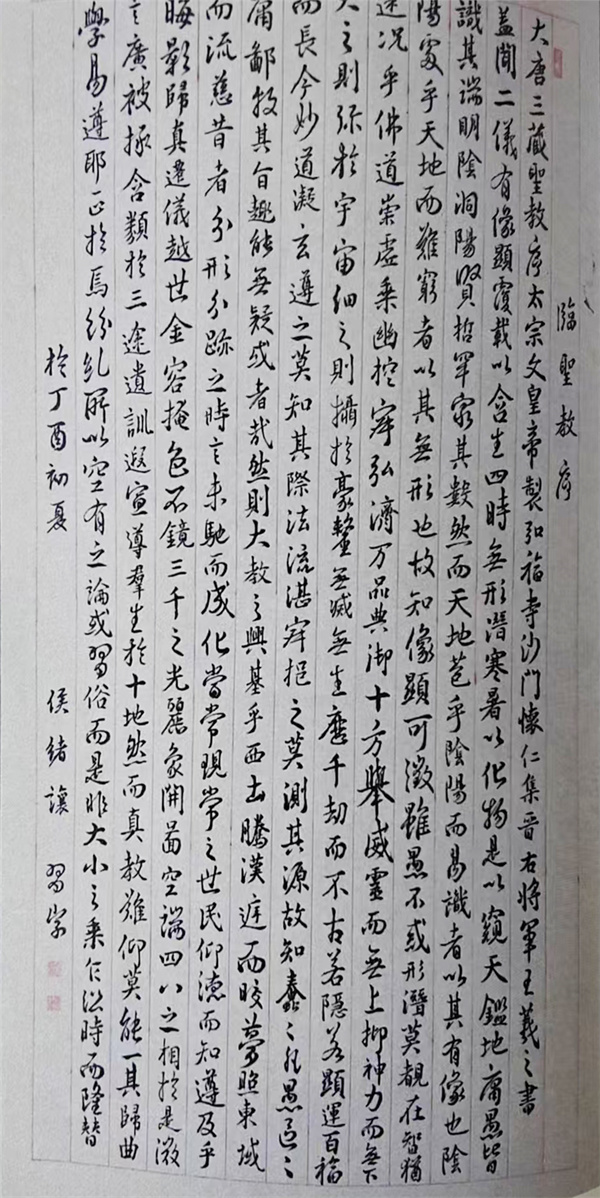 臨聖教序
大唐三藏聖教序太宗文皇帝製弘福寺沙門懷仁集晋右將軍王羲之書
蓋聞二儀有像顯覆載以含生四時無形潛寒暑以化物是以窺天鑑地庸愚皆
識其端明陰洞陽賢哲罕窮其數然而天地苞乎陰陽而易識者以其有像也陰
陽處乎天地而難窮者以其無形也故知像顯可徵雖愚不惑形潛莫覩在智猶
迷況乎佛道崇虛乘幽控寂弘濟万品典御十方舉威靈而無上抑神力而無下
大之則弥於宇宙細之則攝於豪釐無滅無生歷千劫而不古若隱若顯運百福
而長今妙道凝玄遵之莫知其際法流湛寂挹之莫測其源故知蠢〻凡愚區〻
庸鄙投其旨趣能無疑或者哉然則大教之興基乎西土騰漢庭而皎夢照東域
而流慈昔者分形分跡之時言未馳而成化當常現常之世民仰德而知遵及乎
晦影歸真遷儀越世金容掩色不鏡三千之光麗象開圖空端四八之相於是微
言廣被拯含類於三途遺訓遐宣導羣生於十地然而真教難仰莫能一其歸曲
學易遵耶正於焉紛糺所以空有之論或習俗而是非大小之乘乍沿時而隆替
於丁酉初夏 侯緒讓 習字